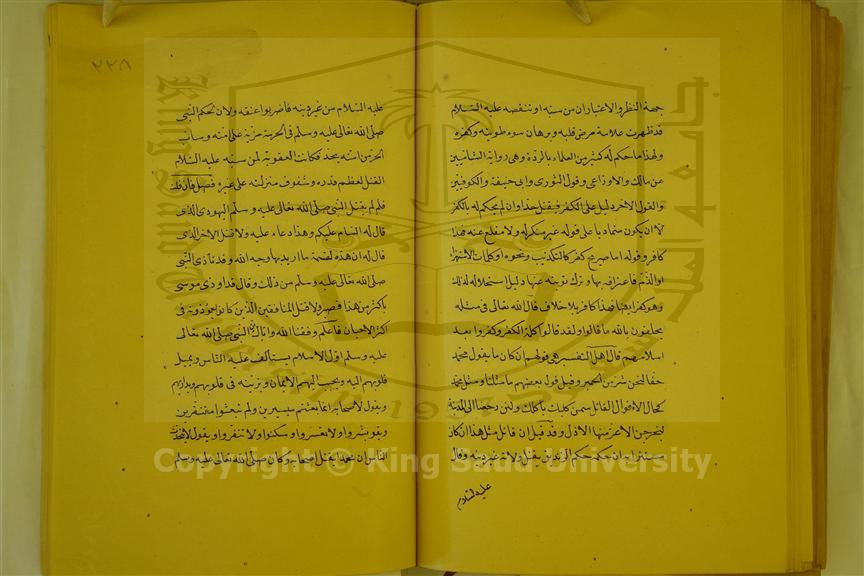 جهة النظر والاعتبار ان من سبّه او تنقصه عليه السلام
قد ظهرت علامة مرض قلبه وبرهان سوء طويته وكفره
ولهذا ما حكم له كثير من العلماء بالردة وهى رواية الشاميين
عن مالك والاوزاعى وقول الثورى وابى حنيفة والكوفيين
والقول الاخر دليل على الكفر فيقتل حدا وان لم يحكم له بالكفر
الا ان يكون متماديا على قوله غير منكر له ولا مقلع عنه فهذا
كافر وقوله اما صريح كفر كالتكذيب ونحوه او كلمات الاستهزاء
او الذم فاعترافه بها وترك توبته عنها دليل استحلاله لذلك
وهو كفر ايضا فهذا كافر بلا خلاف قال الله تعالى فى مثله
يحلفون بالله ما قالوا ولقد قالوا كلمة الكفر وكفروا بعد
اسلامهم قال اهل التفسير هى قولهم ان كان ما يقول محمد
حقا لنحن شر من الحمير وقيل قول بعضهم ما مثلنا ومثل محمد
كحال الاقوال القائل سمن كلبك يأكلك ولئن رجعنا الى المدينة
ليخرجن الاعز منها الاذل وقد قيل ان قائل مثل هذا ان كان
مستترا به ان حكمه حكم الزنديق يقتل ولانه غير دينه وقال
عليه السلام
٢٢٨
عليه السلام من غير دينه فاضربوا عنقه ولان لحكم النبى
صلى الله تعالى عليه وسلم فى الحرمة مزية على امته وساب
الحر من امته يحد فكانت العقوبة لمن سبه عليه السلام
القتل لعظيم قدره وشفوف منزلته على غيره فصل فان قلت
فلم لم يقتل النبى صلى الله تعالى عليه وسلم اليهودى الذى
قال له السام عليكم وهذا دعاء عليه ولا قتل الاخر الذى
قال له ان هذه لقسمة ما اريد بها وجه الله وقد تأذى النبى
صلى الله تعالى عليه وسلم من ذلك وقال قد اوذى موسى
باكثر من هذا فصبر ولا قتل المنافقين الذين كانوا يؤذونه فى
اكثر الاحيان فاعلم وفقنا الله واياك ان النبى صلى الله تعالى
عليه وسلم اول الاسلام يستألف عليه الناس ويميل
قلوبهم اليه ويحبب اليهم الايمان ويزينه فى قلوبهم ويداريهم
ويقول لاصحابه انما بعثتم ميسرين ولم تبعثوا منفرين
ويقول يسروا ولا تعسروا وسكنوا ولا تنفروا ويقول لا يتحدث
الناس ان محمدا يقتل اصحابه وكان صلى الله تعالى عليه وسلم
Copyright © King Saud University